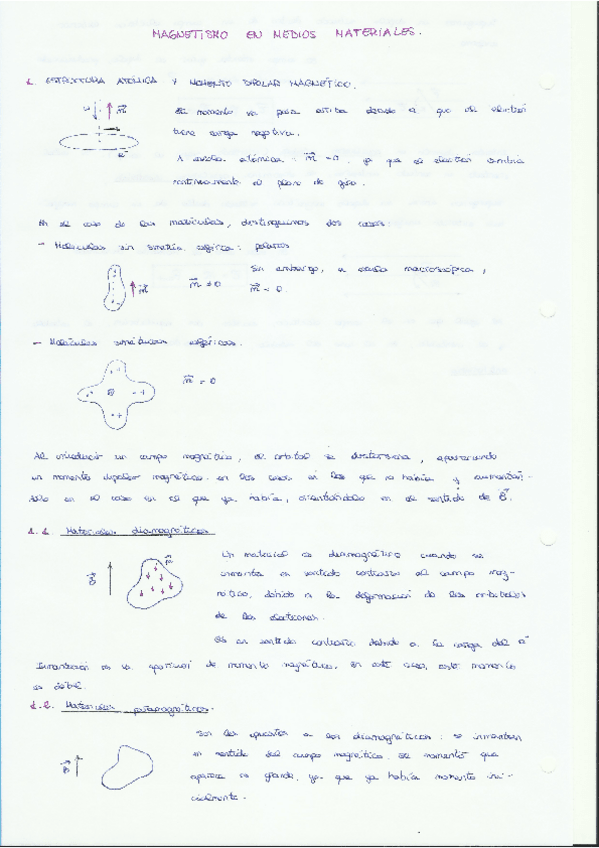 MAGNETISMO EN MEDIOS MATERIALES.
1. ESTRUCTURA ATÓMICA Y MOMENTO DIPOLAR MAGNÉTICO.
El momento va para arriba debido a que el electrón
tiene carga negativa.
A escala atómica: m = 0, ya que el electrón cambia
continuamente el plano de giro.
En el caso de las moléculas, distinguimos dos casos:
- Moléculas sin simetría esférica: polares
Sin embargo, a escala macroscópica,
m
m ≠ 0
m = 0.
- Moléculas simétricas esféricas.
m = 0
Al introducir un campo magnético, el orbital se distorsiona, apareciendo
un momento dipolar magnético en los casos en los que no había y aumentán-
dolo en el caso en el que ya había, orientándolo en el sentido de B.
1.1. Materiales diamagnéticos
Un material es diamagnético cuando se
imanta en sentido contrario al campo mag-
B
nético, debido a la deformación de los orbitales
de los electrones.
Es en sentido contrario debido a la carga del e-
Imantación es la aparición de momento magnético, en este caso, este momento
es débil.
1.2. Materiales paramagnéticos.
Son los opuestos a los diamagnéticos: se imantan
en sentido del campo magnético. El momento que
B
aparece es grande, ya que ya había momento ini-
cialmente.